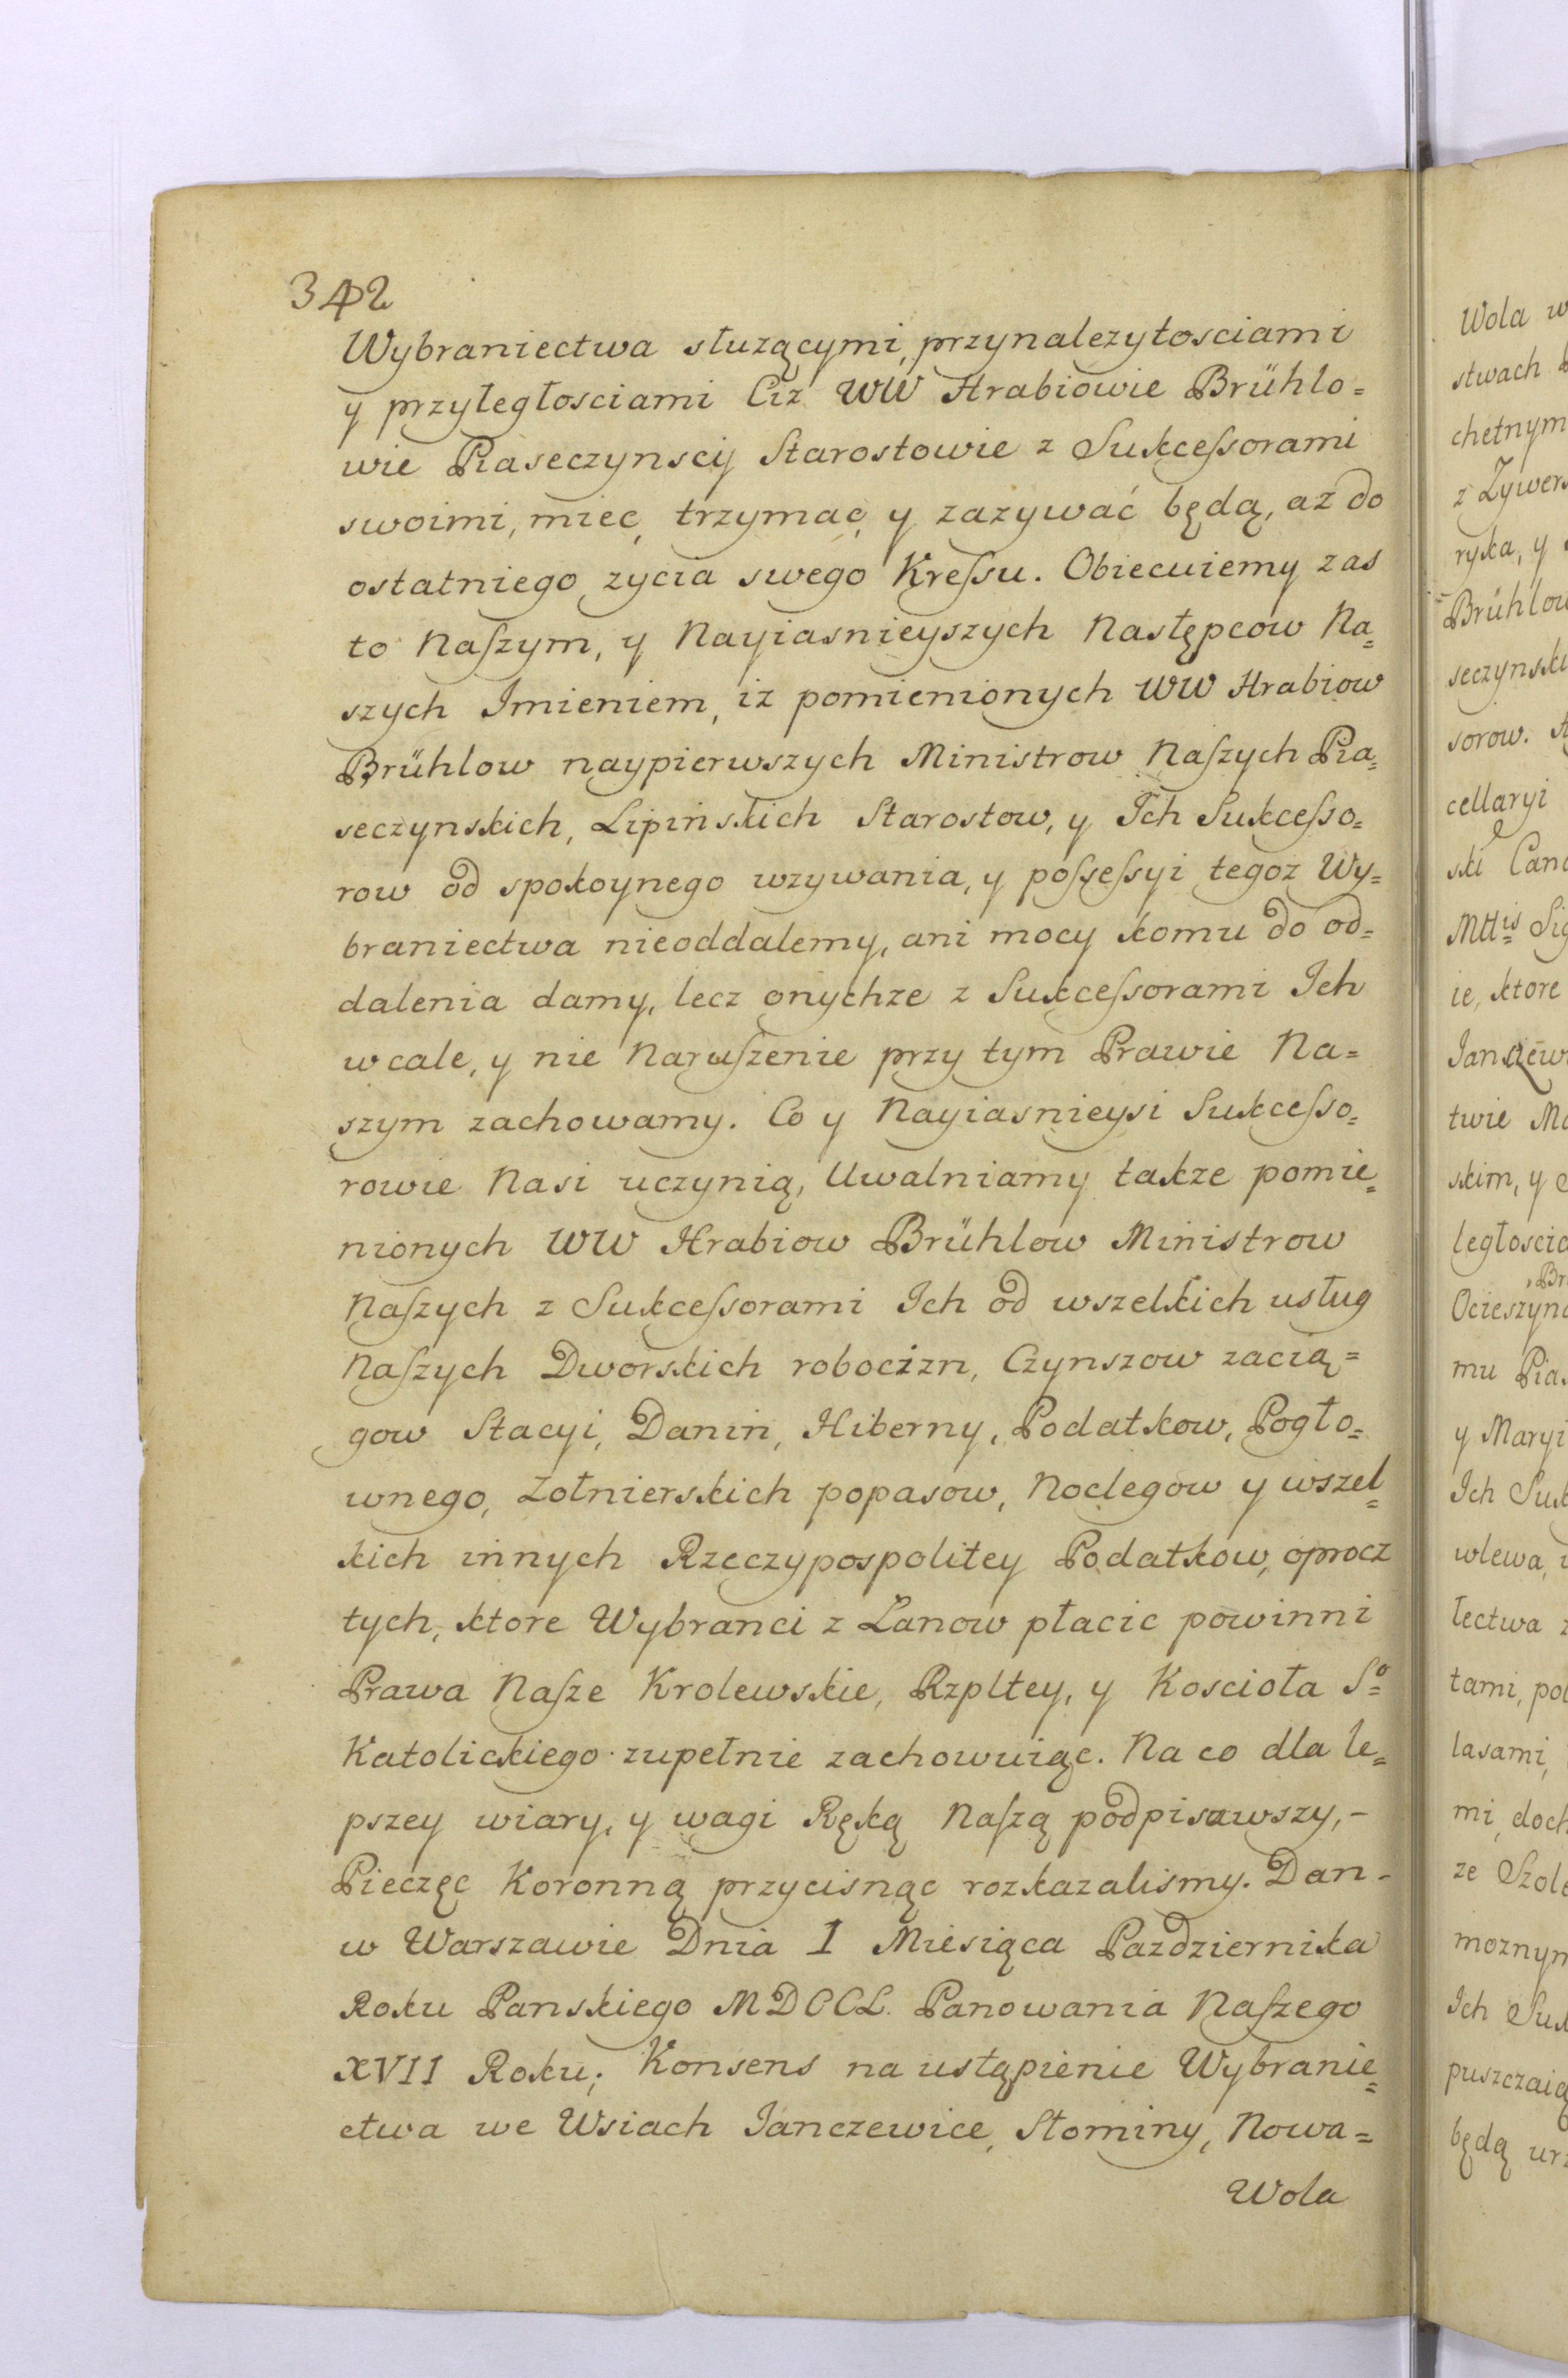 342
Wybraniectwa służącymi, przynalezytosciami
y przyległosciami Ciz WW Hrabiowie Brühlo=
wie Piaseczynscy Starostowie z Sukceſsorami
swoimi, miec, trzymac, y zazywać będą, az do
ostatniego zycia swego Kreſsu. Obiecuiemy zas
to Naſzym, y Nayiasnieyszych Następcow Na=
szych Imieniem, iz pomienionych WW Hrabiow
Brühlow naypierwszych Ministrow Naſzych Pia=
seczynskich, Lipińskich Starostow, y Ich Sukceſso=
row od spokoynego wzywania, y poſseſsyi tegoz Wy=
braniectwa nieoddalemy, ani mocy komu do od=
dalenia damy, lecz onychze z Sukceſsorami Ich
wcale, y nie Naruſzenie przy tym Prawie Na=
szym zachowamy. Co y Nayiasnieysi Sukceſso=
rowie Nasi uczynią, Uwalniamy takze pomie=
nionych WW Hrabiow Brühlow Ministrow
Naſzych z Sukceſsorami Ich od wszelkich usług
Naſzych Dworskich robocizn, Czynszow zacią=
gow Stacyi, Danin, Hiberny, Podatkow, Pogło=
wnego, Zołnierskich popasow, Noclegow y wszel=
kich innych Rzeczypospolitey Podatkow, oprocz
tych, ktore Wybranci z Łanow płacic powinni
Prawa Naſze Krolewskie, Rzpltey, y Koscioła Sº
Katolickiego zupełnie zachowuiąc. Na co dla le=
pszey wiary, y wagi Ręką Naſzą podpisawszy,-
Pieczęc Koronną przycisnąc rozkazalismy. Dan-
w Warszawie Dnia 1 Miesiąca Pazdziernika
Roku Panskiego MDCCL. Panowania Naſzego
XVII Roku; Konsens na ustąpienie Wybranie=
ctwa we Wsiach Janczewice, Słominy, Nowa=
Wola
Wola
stwach
chetnym
ryka, y
Brühlow
sorow.
cellaryi
ski
ie, ktore
twie
skim, y
Ocieszyn
mu
y Maryi
Ich
wlewa,
łectwa
tami,
lasami,
mi,
ze
Ich
będą